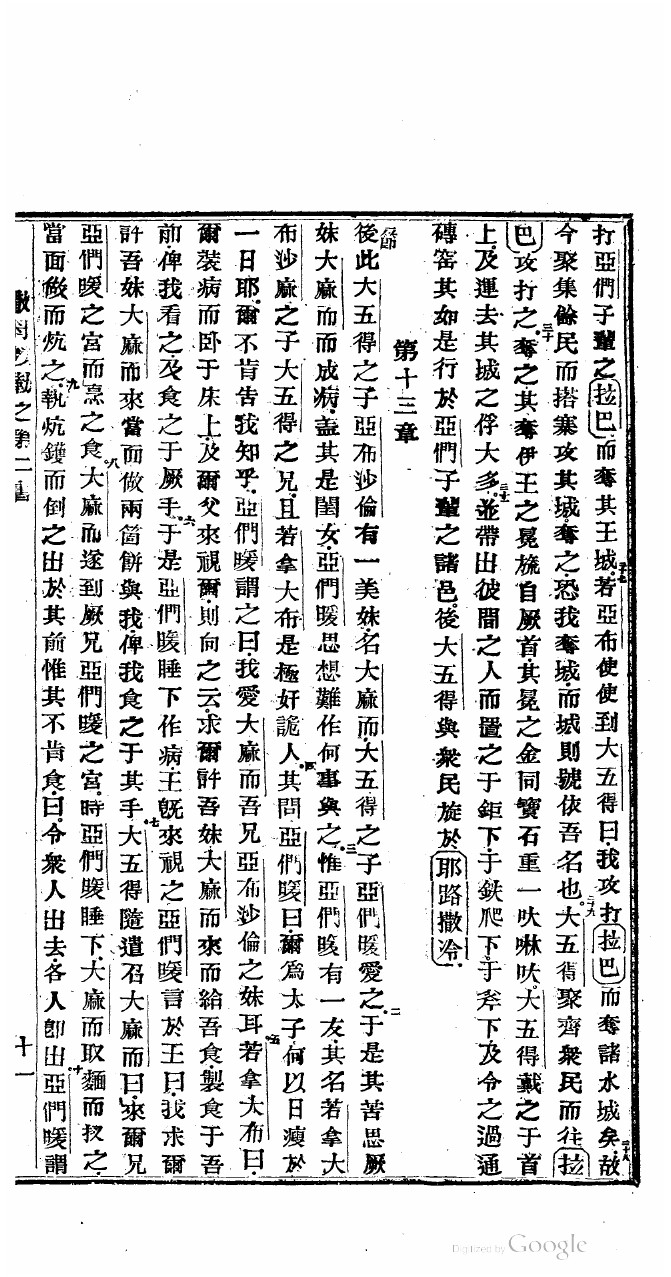 打亞們子輩之拉巴而奪其王城。二十七若亞布使使到大五得曰我攻打拉巴而奪諸水城矣。二十八故
今聚集餘民而搭寨攻其城奪之恐我奪城而城則號依吾名也。二十九大五得聚齊衆民而往拉
巴攻打之奪之。三十其奪伊王之冕旒自厥首其冕之金同寶石重一㕭啉㕭。大五得戴之于首
上及運去其城之俘大多。三十一並帶出彼間之人而置之于鉅下于鉄爬下于斧下及令之過通
磚窑其如是行於亞們子輩之諸邑。後大五得與衆民旋於耶路撒冷。
第十三章
節後此大五得之子亞布沙倫有一美妹名大麻而大五得之子亞們㬉愛之。二于是其苦思厥
妹大麻而而成病。蓋其是閨女。亞們㬉思想難作何事與之。三惟亞們㬉有一友其名若拿大
布沙麻之子大五得之兄且若拿大布是極奸詭人。四其問亞們㬉曰爾爲太子何以日瘦於
一日耶爾不肯告我知乎。亞們㬉謂之曰我愛大麻而吾兄亞布沙倫之妹耳。五若拿大布曰
爾裝病而卧于床上及爾父來視爾則向之云求爾許吾妹大麻而來而給吾食製食于吾
前俾我看之及食之于厥手。六于是亞們㬉睡下作病王旣來視之亞們㬉言於王曰我求爾
許吾妹大麻而來當面做兩箇餅與我俾我食之于其手。七大五得隨遣召大麻而曰來爾兄
亞們㬉之宮而烹之食。八大麻而遂到厥兄亞們㬉之宮時亞們㬉睡下大麻而取麵而扠之
當面做而炕之。九執炕鑊而倒之出於其前惟其不肯食曰令衆人出去各人卽出。十亞們㬉謂
之第二書
十一
Digitized by Google